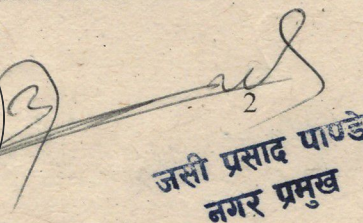 2
जसी प्रसाद पाण्डे
नगर प्रमुख